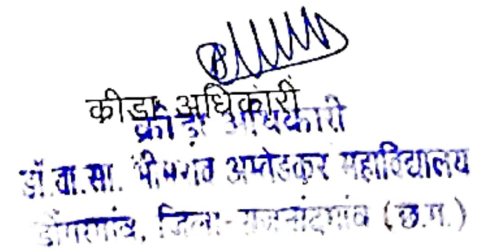 कीडा अधिकारी
क्रीड़ा अधिकारी
डॉ.बा.सा. भीमराव अम्बेडकर महाविद्यालय
डोंगरगांव, जिला-राजनांदगांव (छ.ग.)